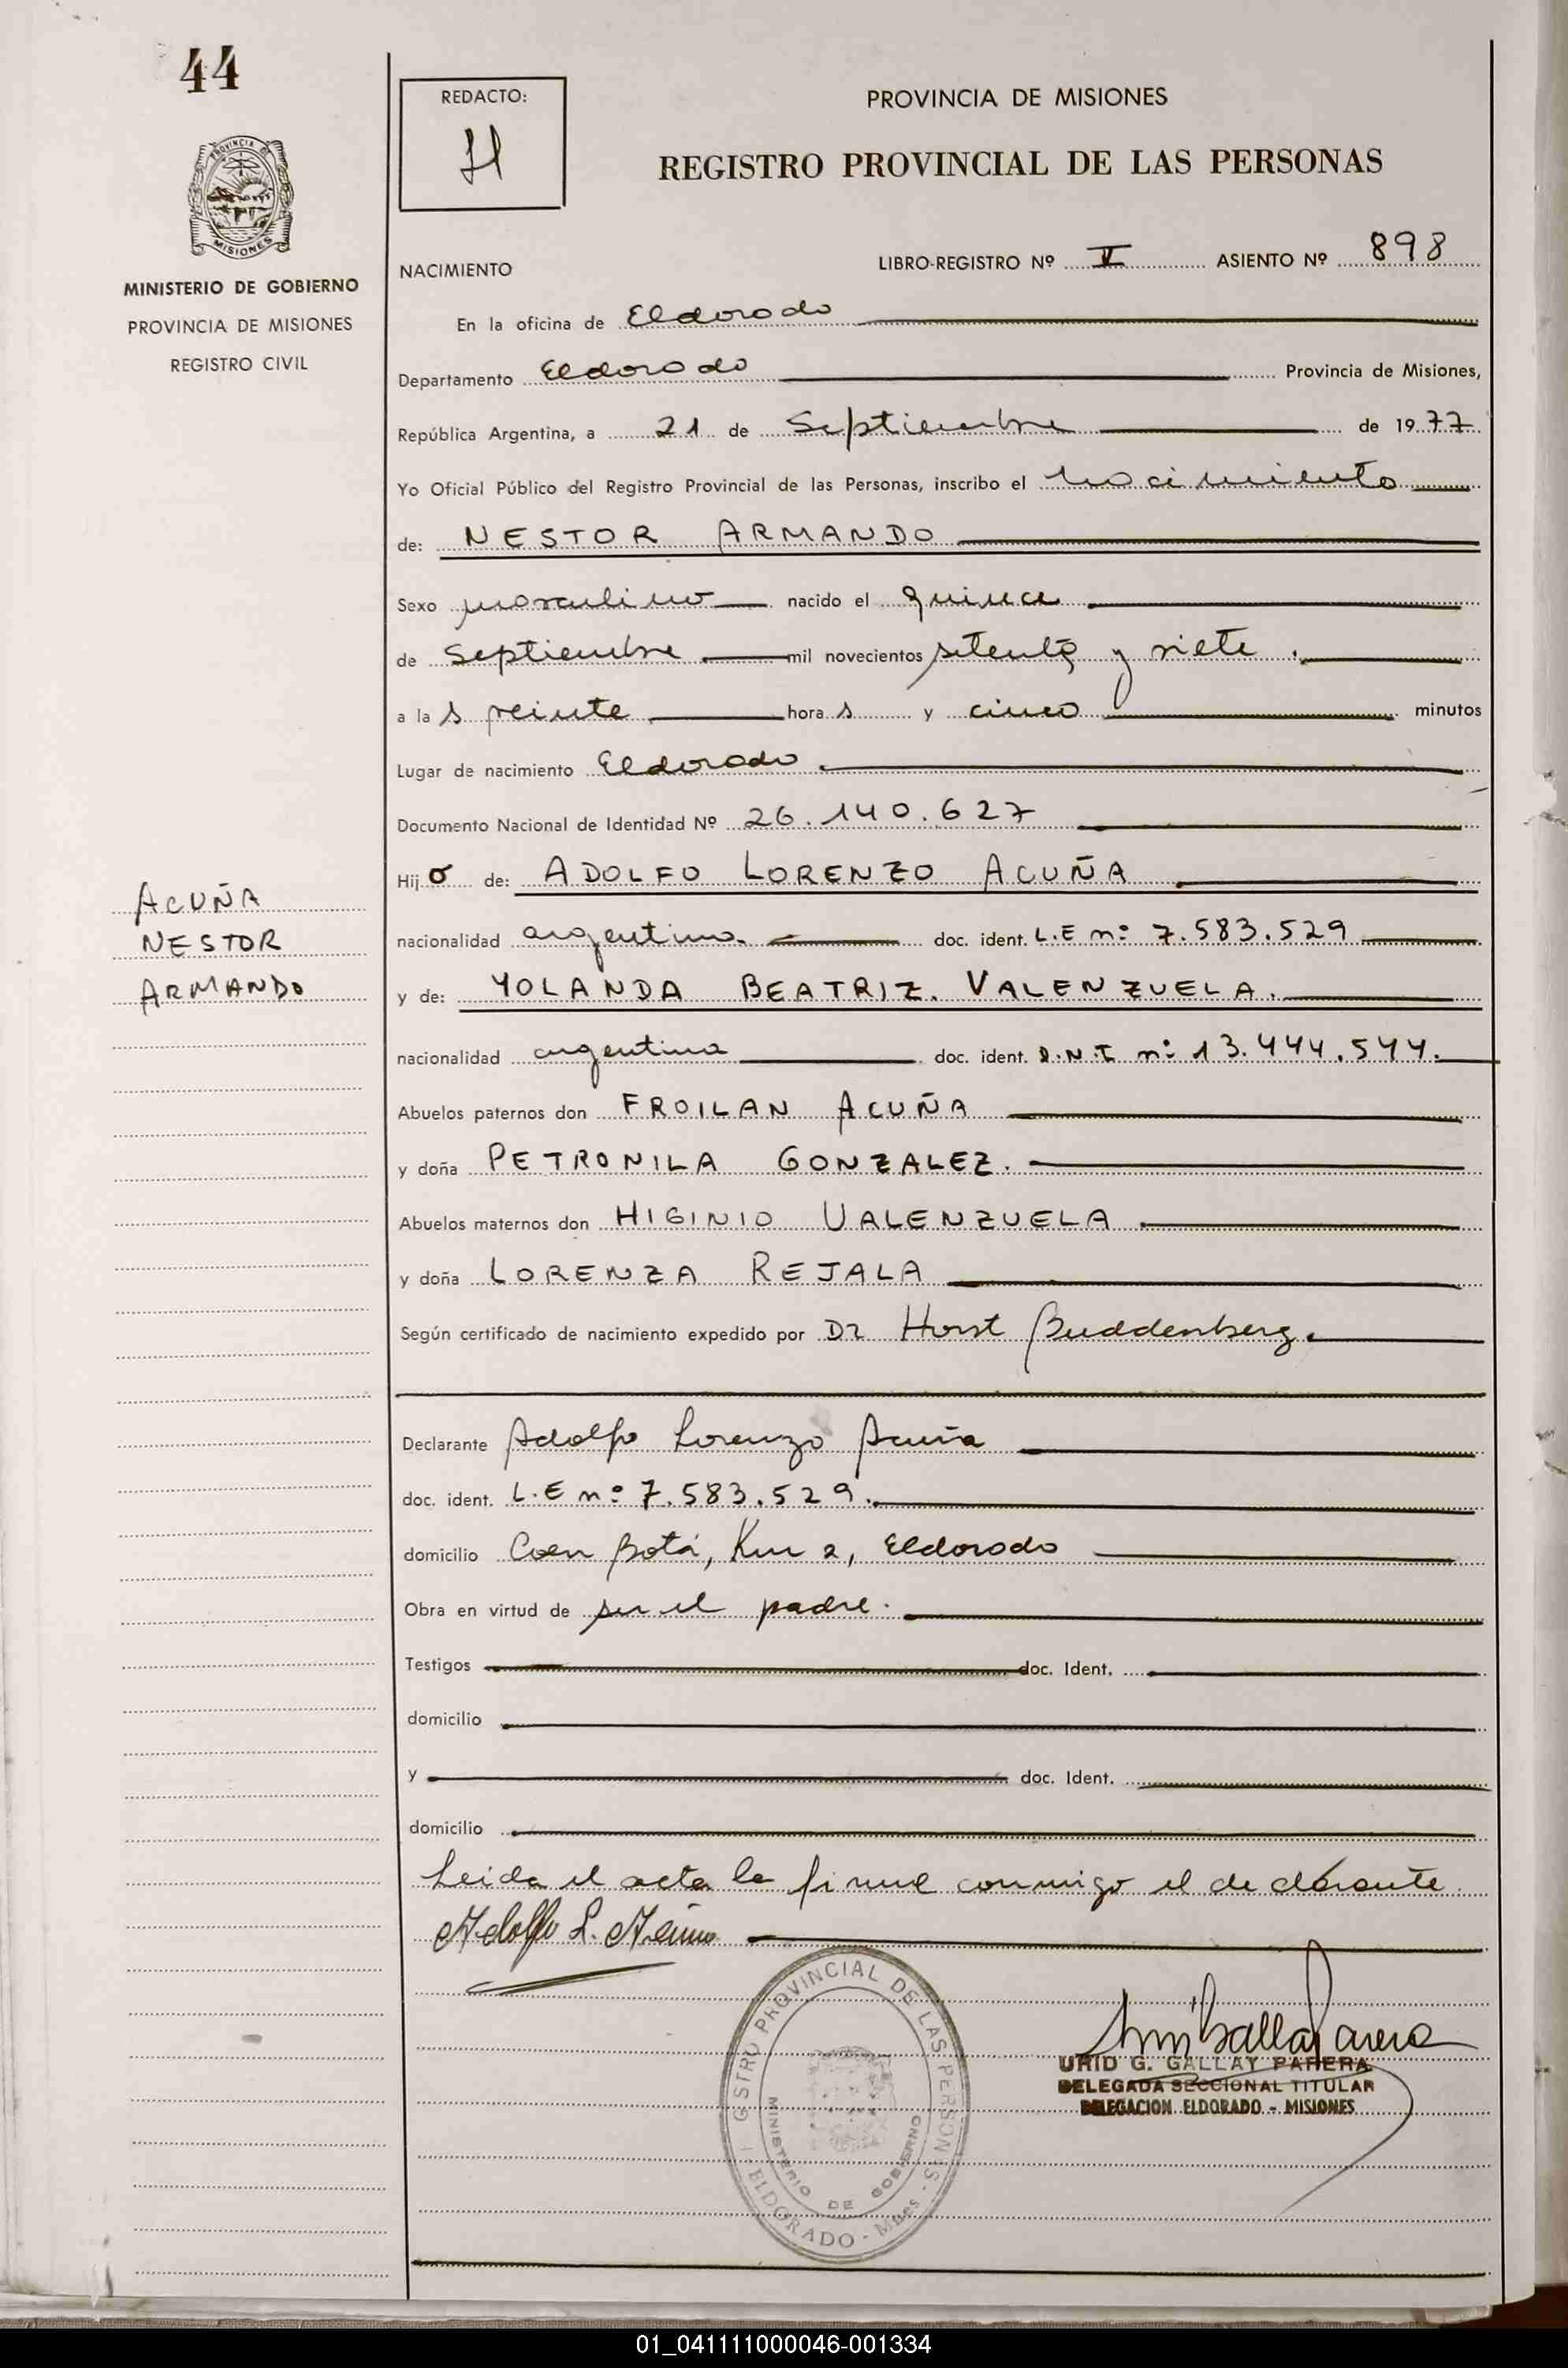 44
PROVINCIA DE
MISIONES
MINISTERIO DE GOBIERNO
PROVINCIA DE MISIONES
REGISTRO CIVIL
ACUÑA
NESTOR
ARMANDO
REDACTO:
H
PROVINCIA DE MISIONES
REGISTRO PROVINCIAL DE LAS PERSONAS
NACIMIENTO LIBRO-REGISTRO Nº V ASIENTO Nº 898
En la oficina de Eldorado
Departamento Eldorado Provincia de Misiones,
República Argentina, a 21 de Septiembre de 1977
Yo Oficial Público del Registro Provincial de las Personas, inscribo el nacimiento
de: NESTOR ARMANDO
Sexo masculino nacido el quince
de Septiembre mil novecientos setenta y siete.
a las veinte horas y cinco minutos
Lugar de nacimiento Eldorado
Documento Nacional de Identidad Nº 26.140.627
Hijo de: ADOLFO LORENZO ACUÑA
nacionalidad argentino. doc. ident. L.E nº 7.583.529
y de: YOLANDA BEATRIZ. VALENZUELA.
nacionalidad argentina doc. ident. D.N.I nº 13.444.544.
Abuelos paternos don FROILAN ACUÑA
y doña PETRONILA GONZALEZ.
Abuelos maternos don HIGINIO VALENZUELA
y doña LORENZA REJALA
Según certificado de nacimiento expedido por Dr Horst Buddenberg.
Declarante Adolfo Lorenzo Acuña
doc. ident. L.E nº 7.583.529.
domicilio Coen Potá, Km 2, Eldorado
Obra en virtud de ser el padre.
Testigos doc. Ident.
domicilio
y doc. Ident.
domicilio
Leida el acta la firma conmigo el declarante
Adolfo L. Acuña
REGISTRO PROVINCIAL DE LAS PERSONAS
MINISTERIO DE GOBIERNO
ELDORADO - Mnes -
URID G. GALLAY PARERA
DELEGADA SECCIONAL TITULAR
DELEGACION ELDORADO - MISIONES
01_041111000046-001334